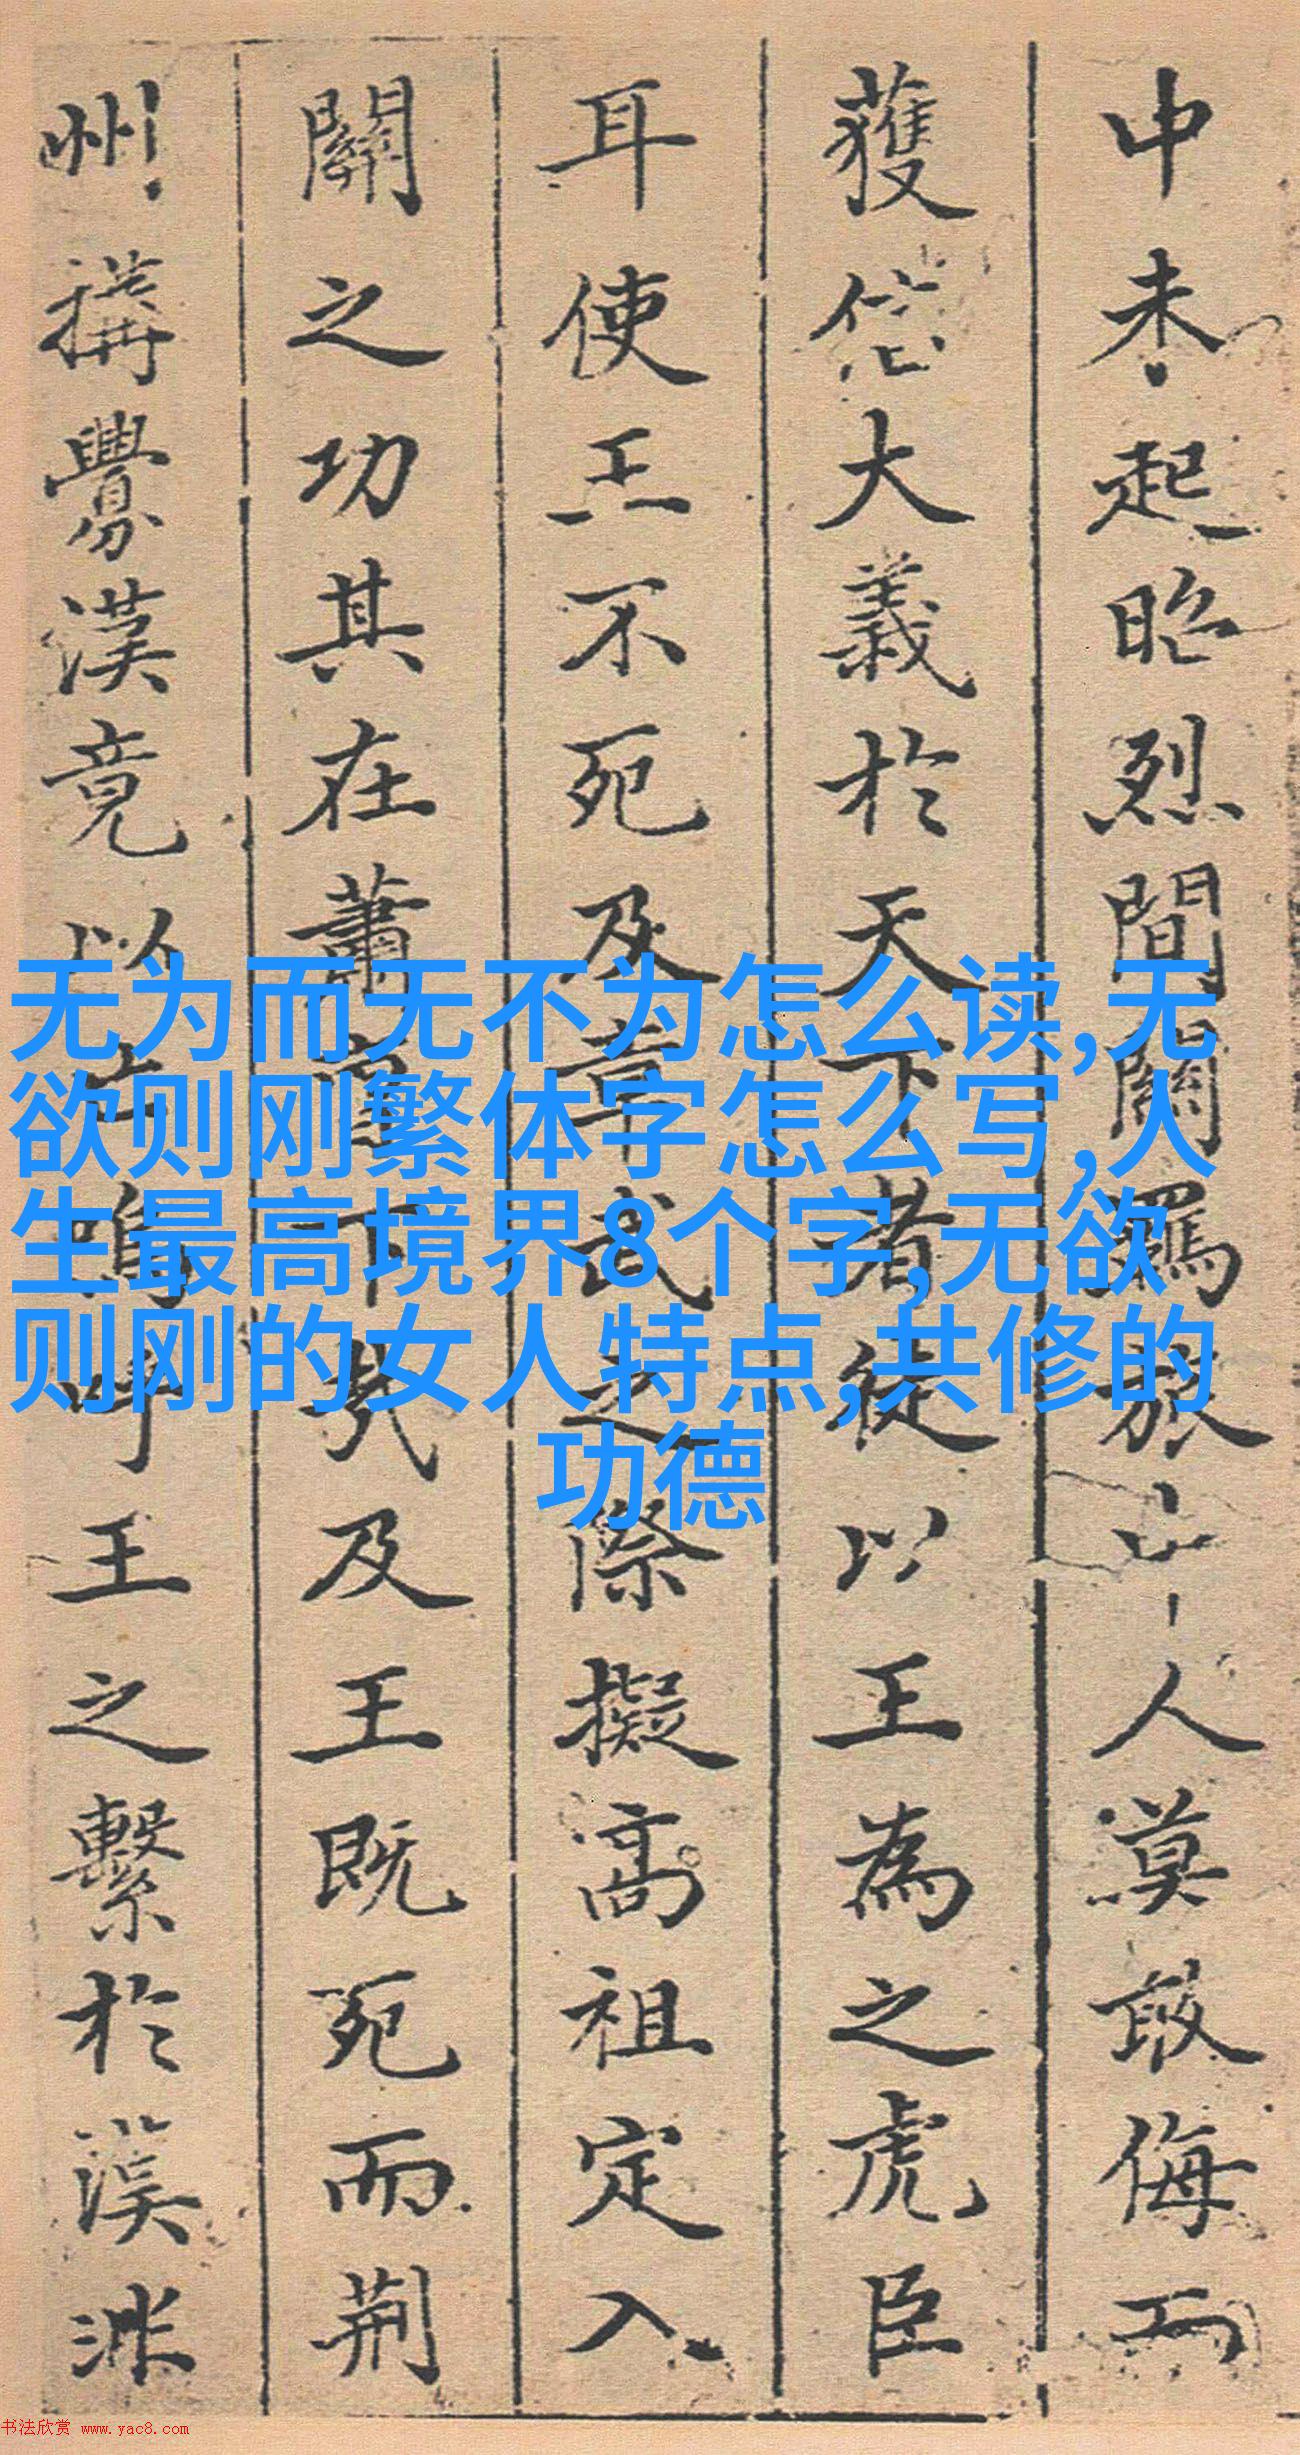 中未起昭烈間關羈旅 人莫敢侮而
獲信大義於天下者徒以王為之虎臣
耳使王不死及章武之際擬高祖定入
關之功其在蕭 下矣及王既死而荊
州搆釁漢竟以亡嗚呼王之繫於漢
无为而无不为怎么读,无
欲则刚繁体字怎么写,人
生最高境界8个字,无欲
则刚的女人特点,共修的
功德
书法欣赏 www.yac8.com